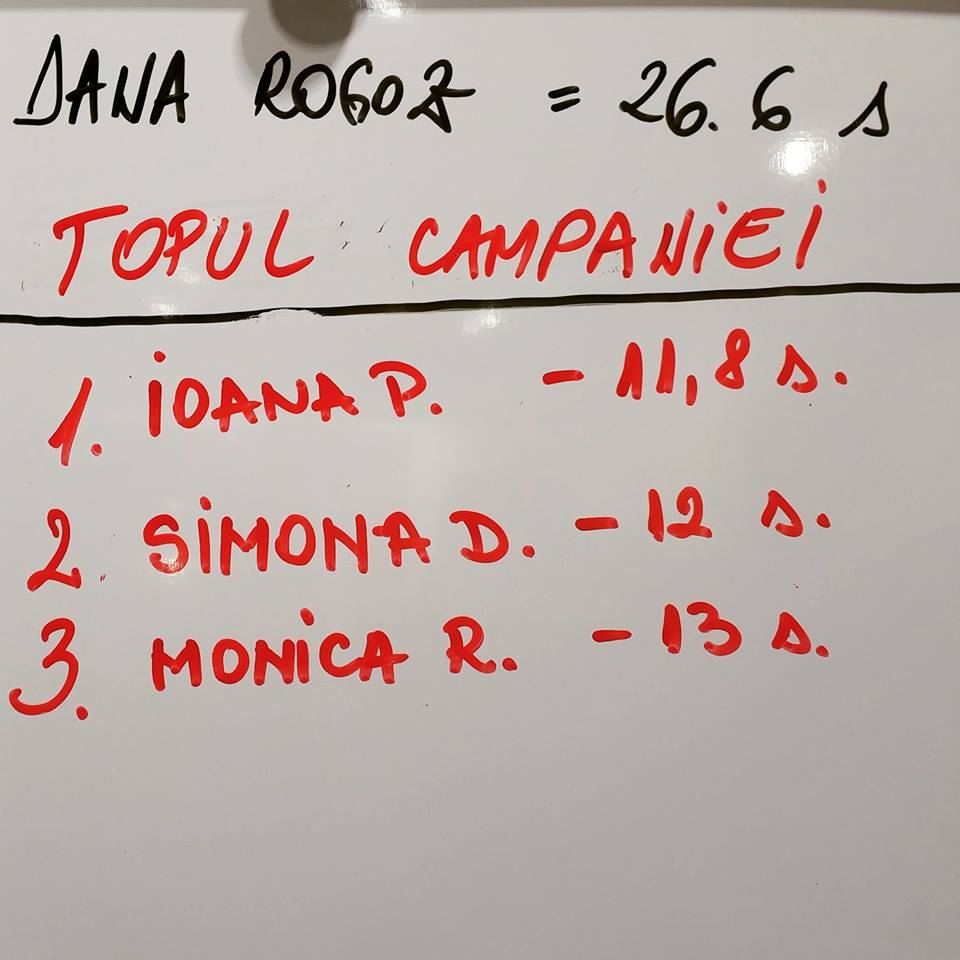 DANA ROGOZ = 26.6 s
TOPUL CAMPANiEi
1. iOANA P. - 11,8 s.
2. SiMONA D. - 12 s.
3. MONiCA R. - 13 s.